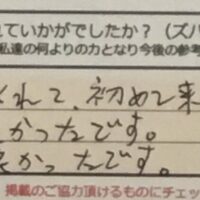 れていかがでしたか？（ズバ
私達の何よりの力となり今後の参考
くれて、初めて来
かったです。
かったです。
掲載のご協力頂けるものにチェッ